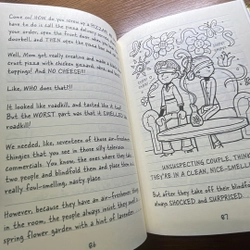 Come on! HOW do you screw up a PIZZA? All you
have to do is call the pizza delivery
your order, open the front door
doorbell, and THEN open the pizza
Well, Mom got really creative and made a
crust pizza with chicken gizzards, olives, and
topping! And NO CHEESE!!
Like, WHO does that?!
It looked like roadkill, and tasted like
But the WORST part was that it SMELLED
roadkill!
We needed, like, seventeen of those air-freshener
thingies that you see in those silly television
commercials. You know, the ones where they take
two people and blindfold them and place them in a
really foul-smelling, nasty place.
However, because they have an air-freshener
in the room, the people always insist they smell
spring flower garden with a hint of lavender
86
UNSUSPECTING COUPLE, THINKING
THEY'RE IN A CLEAN, NICE-SMELLING
But after they take off their blindfolds
always SHOCKED and SURPRISED
87